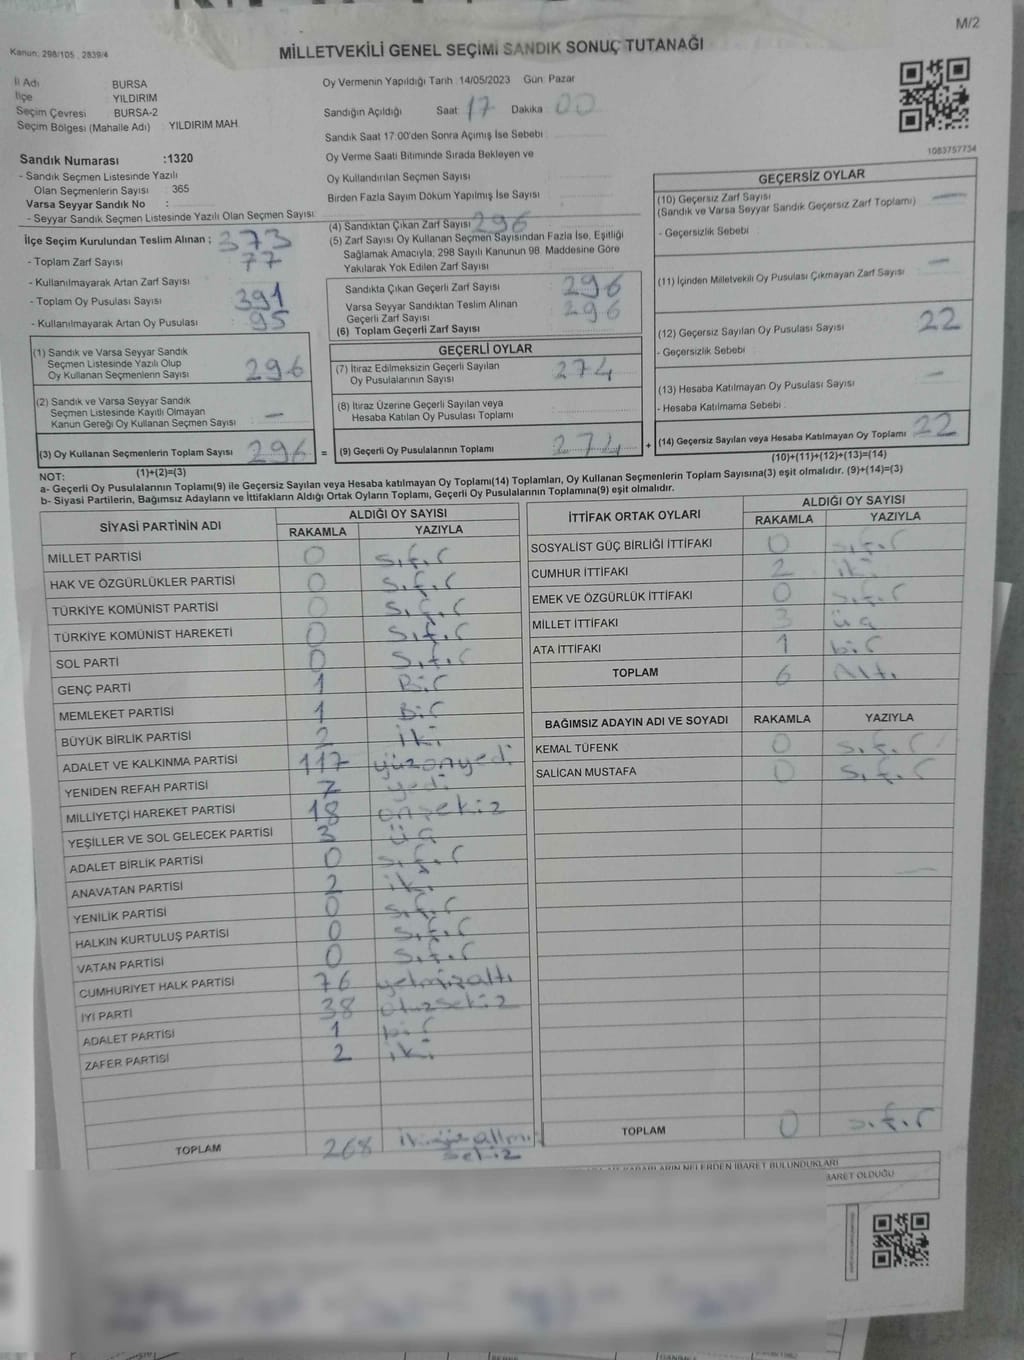 M/2
Kanun: 298/105 , 2839/4
MİLLETVEKİLİ GENEL SEÇİMİ SANDIK SONUÇ TUTANAĞI
İl Adı : BURSA
İlçe : YILDIRIM
Seçim Çevresi : BURSA-2
Seçim Bölgesi (Mahalle Adı) : YILDIRIM MAH.
Sandık Numarası :1320
- Sandık Seçmen Listesinde Yazılı
Olan Seçmenlerin Sayısı : 365
Varsa Seyyar Sandık No :
- Seyyar Sandık Seçmen Listesinde Yazılı Olan Seçmen Sayısı:
Oy Vermenin Yapıldığı Tarih :14/05/2023 Gün: Pazar
Sandığın Açıldığı Saat: 17 Dakika : 00
Sandık Saat 17:00'den Sonra Açımış İse Sebebi :
Oy Verme Saati Bitiminde Sırada Bekleyen ve
Oy Kullandırılan Seçmen Sayısı :
Birden Fazla Sayım Döküm Yapılmış İse Sayısı :
1083757734
İlçe Seçim Kurulundan Teslim Alınan ;
- Toplam Zarf Sayısı : 373
- Kullanılmayarak Artan Zarf Sayısı : 77
- Toplam Oy Pusulası Sayısı : 391
- Kullanılmayarak Artan Oy Pusulası : 95
(1) Sandık ve Varsa Seyyar Sandık
Seçmen Listesinde Yazılı Olup
Oy Kullanan Seçmenlerin Sayısı : 296
(2) Sandık ve Varsa Seyyar Sandık
Seçmen Listesinde Kayıtlı Olmayan
Kanun Gereği Oy Kullanan Seçmen Sayısı : —
(3) Oy Kullanan Seçmenlerin Toplam Sayısı : 296
(1)+(2)=(3)
(4) Sandıktan Çıkan Zarf Sayısı : 296
(5) Zarf Sayısı Oy Kullanan Seçmen Sayısından Fazla İse, Eşitliği
Sağlamak Amacıyla, 298 Sayılı Kanunun 98. Maddesine Göre
Yakılarak Yok Edilen Zarf Sayısı :
Sandıkta Çıkan Geçerli Zarf Sayısı : 296
Varsa Seyyar Sandıktan Teslim Alınan
Geçerli Zarf Sayısı : 296
(6) Toplam Geçerli Zarf Sayısı :
GEÇERLİ OYLAR
(7) İtiraz Edilmeksizin Geçerli Sayılan
Oy Pusulalarının Sayısı : 274
(8) İtiraz Üzerine Geçerli Sayılan veya
Hesaba Katılan Oy Pusulası Toplamı :
= (9) Geçerli Oy Pusulalarının Toplamı : 274 +
GEÇERSİZ OYLAR
(10) Geçersiz Zarf Sayısı : —
(Sandık ve Varsa Seyyar Sandık Geçersiz Zarf Toplamı)
- Geçersizlik Sebebi :
(11) İçinden Milletvekili Oy Pusulası Çıkmayan Zarf Sayısı : —
(12) Geçersiz Sayılan Oy Pusulası Sayısı : 22
- Geçersizlik Sebebi :
(13) Hesaba Katılmayan Oy Pusulası Sayısı : —
- Hesaba Katılmama Sebebi :
(14) Geçersiz Sayılan veya Hesaba Katılmayan Oy Toplamı : 22
(10)+(11)+(12)+(13)=(14)
NOT:
a- Geçerli Oy Pusulalarının Toplamı(9) ile Geçersiz Sayılan veya Hesaba katılmayan Oy Toplamı(14) Toplamları, Oy Kullanan Seçmenlerin Toplam Sayısına(3) eşit olmalıdır. (9)+(14)=(3)
b- Siyasi Partilerin, Bağımsız Adayların ve İttifakların Aldığı Ortak Oyların Toplamı, Geçerli Oy Pusulalarının Toplamına(9) eşit olmalıdır.
SİYASİ PARTİNİN ADI ALDIĞI OY SAYISI
RAKAMLA YAZIYLA
MİLLET PARTİSİ 0 sıfır
HAK VE ÖZGÜRLÜKLER PARTİSİ 0 sıfır
TÜRKİYE KOMÜNİST PARTİSİ 0 sıfır
TÜRKİYE KOMÜNİST HAREKETİ 0 sıfır
SOL PARTİ 0 sıfır
GENÇ PARTİ 1 Bir
MEMLEKET PARTİSİ 1 Bir
BÜYÜK BİRLİK PARTİSİ 2 iki
ADALET VE KALKINMA PARTİSİ 117 yüzonyedi
YENİDEN REFAH PARTİSİ 7 yedi
MİLLİYETÇİ HAREKET PARTİSİ 18 onsekiz
YEŞİLLER VE SOL GELECEK PARTİSİ 3 üç
ADALET BİRLİK PARTİSİ 0 sıfır
ANAVATAN PARTİSİ 2 iki
YENİLİK PARTİSİ 0 sıfır
HALKIN KURTULUŞ PARTİSİ 0 sıfır
VATAN PARTİSİ 0 sıfır
CUMHURİYET HALK PARTİSİ 76 yetmişaltı
İYİ PARTİ 38 otuzsekiz
ADALET PARTİSİ 1 bir
ZAFER PARTİSİ 2 iki
TOPLAM 268 ikiyüzaltmış
sekiz
İTTİFAK ORTAK OYLARI ALDIĞI OY SAYISI
RAKAMLA YAZIYLA
SOSYALİST GÜÇ BİRLİĞİ İTTİFAKI 0 sıfır
CUMHUR İTTİFAKI 2 iki
EMEK VE ÖZGÜRLÜK İTTİFAKI 0 sıfır
MİLLET İTTİFAKI 3 üç
ATA İTTİFAKI 1 bir
TOPLAM 6 Altı
BAĞIMSIZ ADAYIN ADI VE SOYADI RAKAMLA YAZIYLA
KEMAL TÜFENK 0 sıfır
SALİCAN MUSTAFA 0 sıfır
TOPLAM 0 sıfır
NELERDEN İBARET BULUNDUKLARI
İBARET OLDUĞU